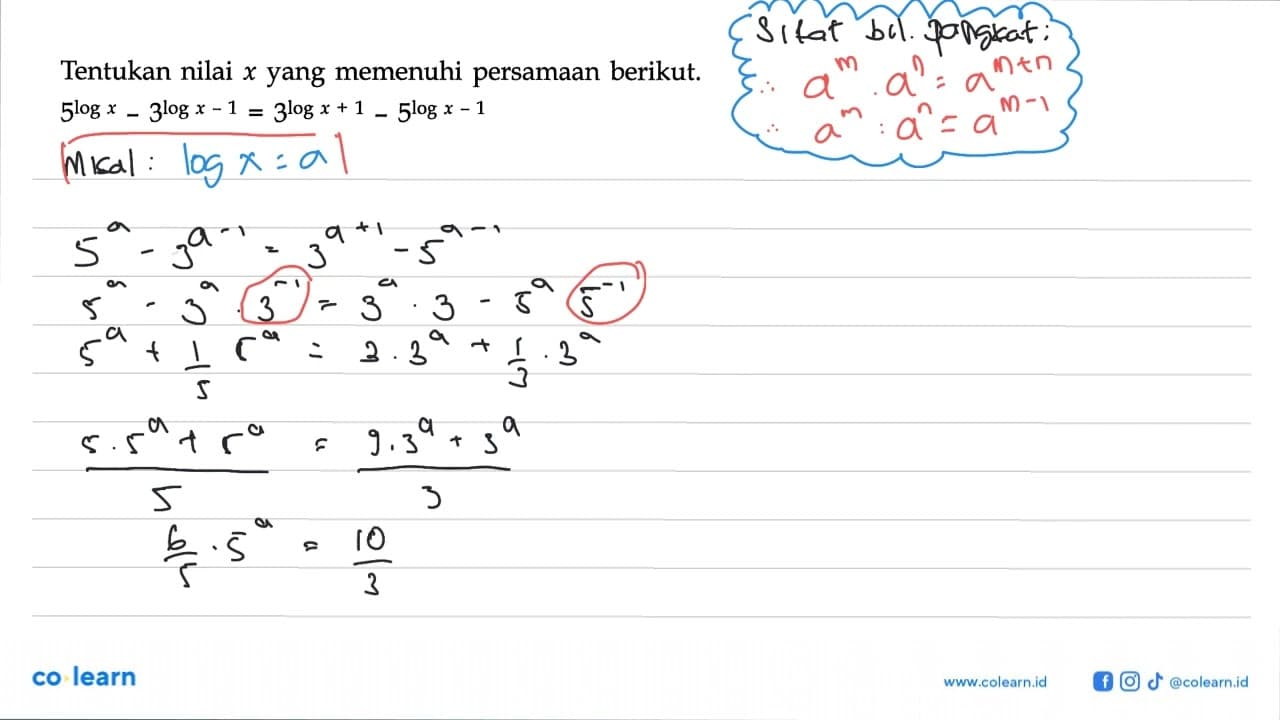 Sifat bil. pangkat:
∴ a^m . a^n = a^{m+n}
∴ a^m : a^n = a^{m-1}
Tentukan nilai x yang memenuhi persamaan berikut.
5^{log x} – 3^{log x – 1} = 3^{log x + 1} – 5^{log x – 1}
Misal : log x = a
5^a - 3^{a-1} = 3^{a+1} - 5^{a-1}
5^a - 3^a . 3^{-1} = 3^a . 3 - 5^a 5^{-1}
5^a + 1/5 5^a = 3 . 3^a + 1/3 . 3^a
5 . 5^a + 5^a / 5 = 9 . 3^a + 3^a / 3
6/5 . 5^a = 10/3
co learn
www.colearn.id
@colearn.id